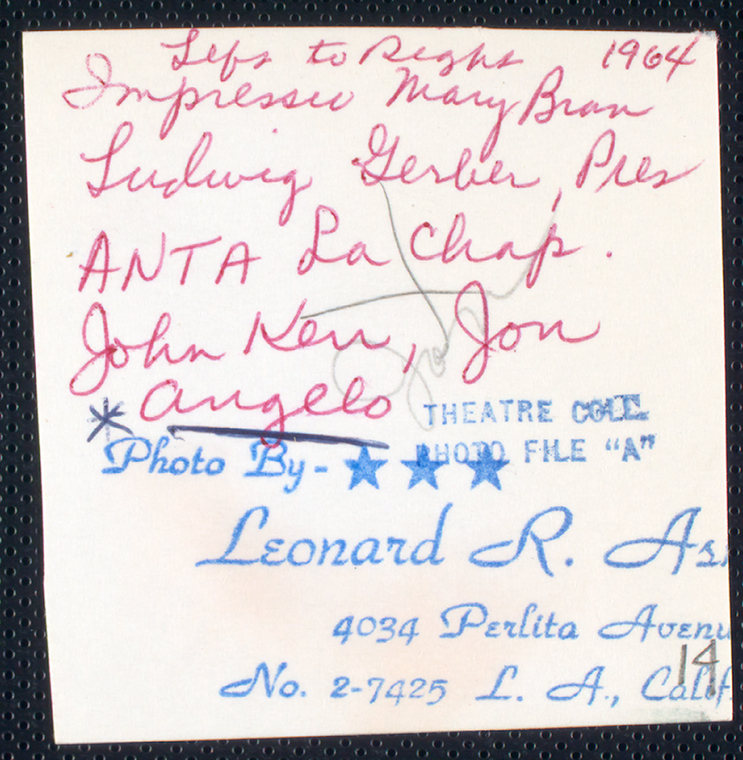 Left to Right 1964
Impressio Mary Bran
Ludwig Gerber, Pres
ANTA La Chap.
John Kerr, Jon
* Angelo
THEATRE COLL.
PHOTO FILE "A"
Photo By-
Leonard R. As
4034 Perlita Avenu
14
No. 2-7425 L. A., Calif.